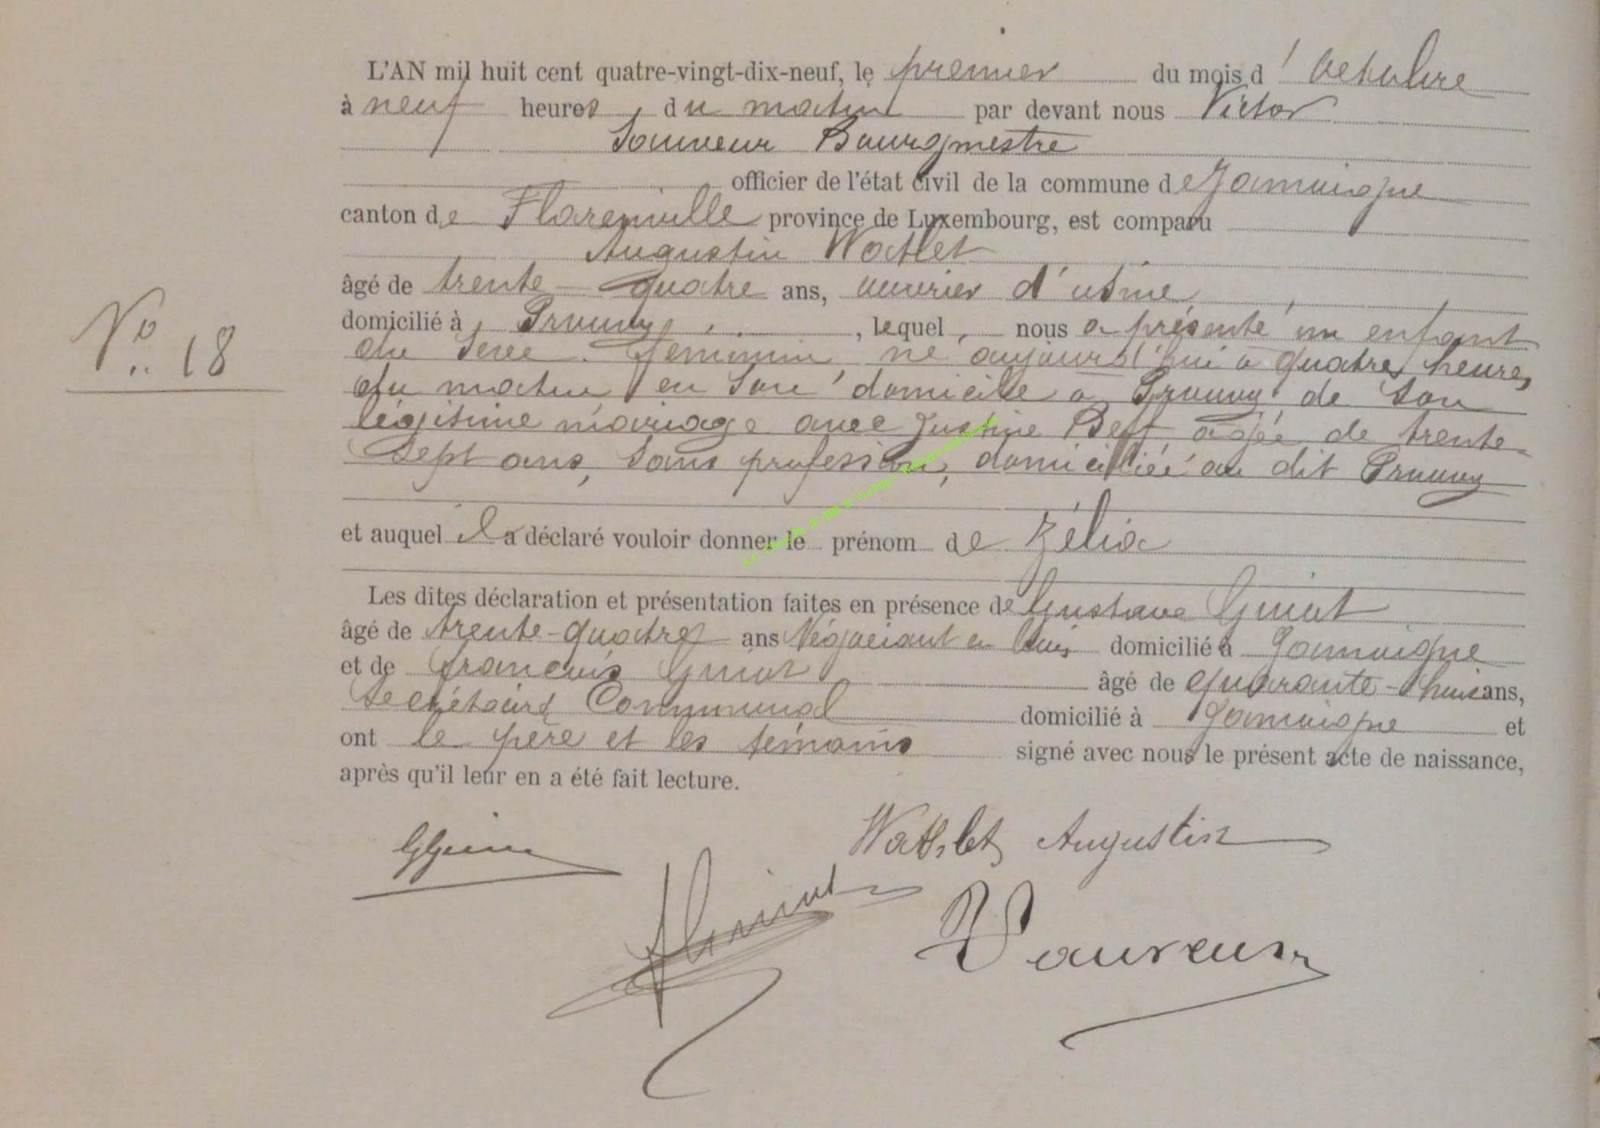 L'AN mil huit cent quatre-vingt-dix-neuf, le premier du mois d'Octobre
à neuf heures du matin par devant nous Victor
Sauveur Bourgmestre
officier de l'état civil de la commune de Jamoigne
canton de Florenville province de Luxembourg, est comparu
Augustin Watlet
âgé de trente-quatre ans, ouvrier d'usine
domicilié à Prouvy, lequel nous a présenté un enfant
du sexe féminin né aujourd'hui à quatre heures
du matin en son domicile à Prouvy de son
légitime mariage avec Justine agée de trente-
sept ans, sans profession, domiciliée au dit Prouvy
et auquel il a déclaré vouloir donner le prénom de Zélia
Les dites déclaration et présentation faites en présence de Gustave
âgé de trente-quatre ans Négociant en bois domicilié à Jamoigne
et de François âgé de quarante-huit ans,
Secrétaire Communal domicilié à Jamoigne et
ont le père et les témoins signé avec nous le présent acte de naissance,
après qu'il leur en a été fait lecture.
N° 18
Watlet Augustin
V Sauveur